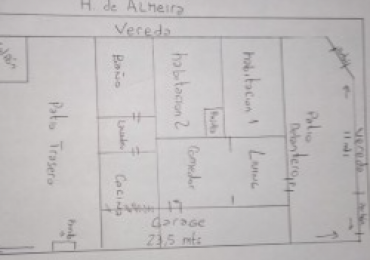 H. de ALMeira
Vereda
Baño
habitacion 2
habitacion 1
Patio
Delantero
Vereda
11 mts
Patio Trasero
Cocina
Comedor
Living
Garage
23,5 mts